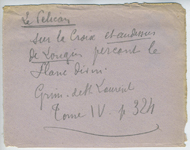 Le Pelican
sur la Croix et au dessus
de Longin perçant le
flanc divin.
Grim. de St Laurent
Tome IV. p 324